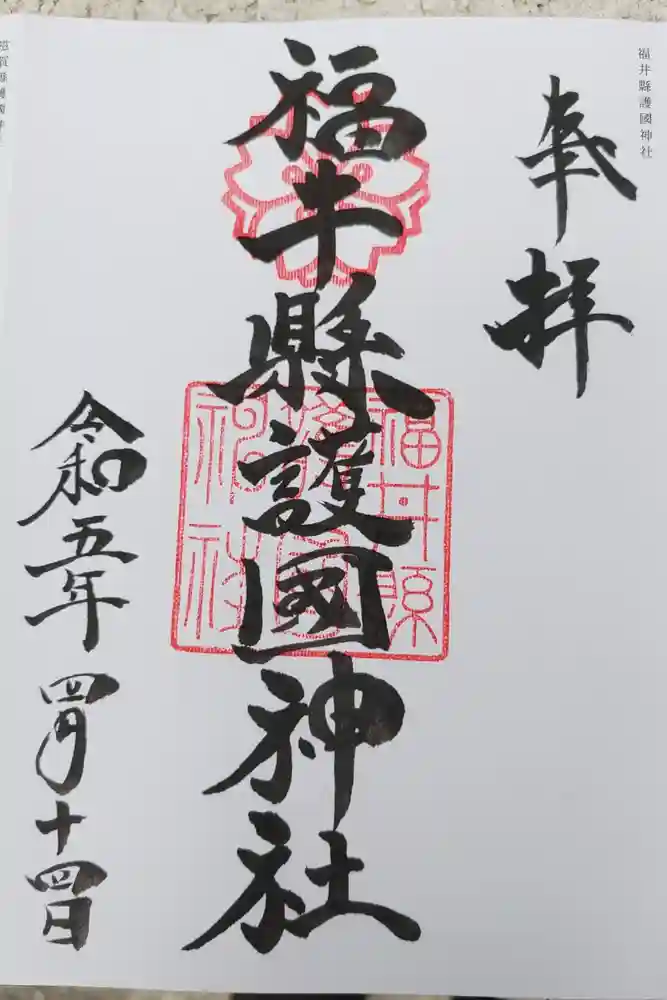 福井縣護國神社
奉拝
福井縣護國神社
福井縣
護國
神社
令和五年四月十四日
滋賀縣護國神社